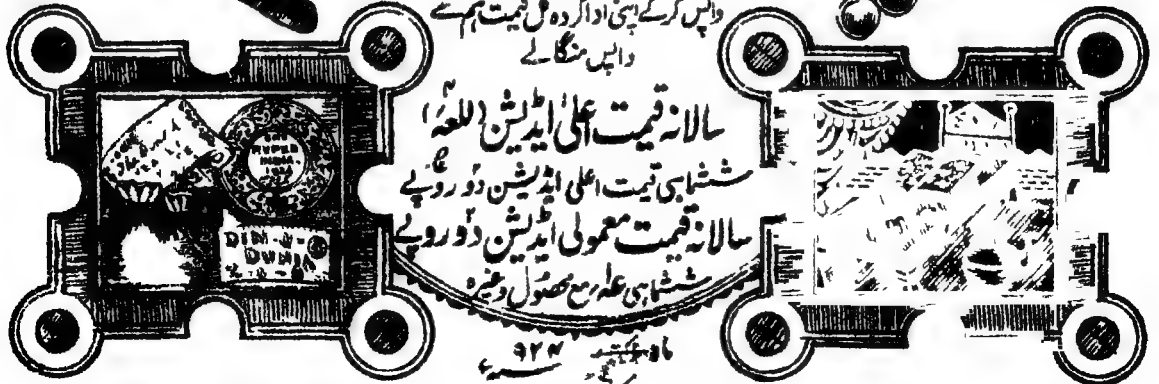 واپس کرکے اپنی ادا کردہ کل قیمت ہم سے
واپس منگالے
سالانہ قیمت اعلیٰ ایڈیشن (للعہ)
ششماہی قیمت اعلیٰ ایڈیشن دو روپے
سالانہ قیمت معمولی ایڈیشن دو روپے
ششماہی عہ مع محصول وغیرہ
ONE
RUPEE
INDIA
DIN-U-
DUNIA
ماہ